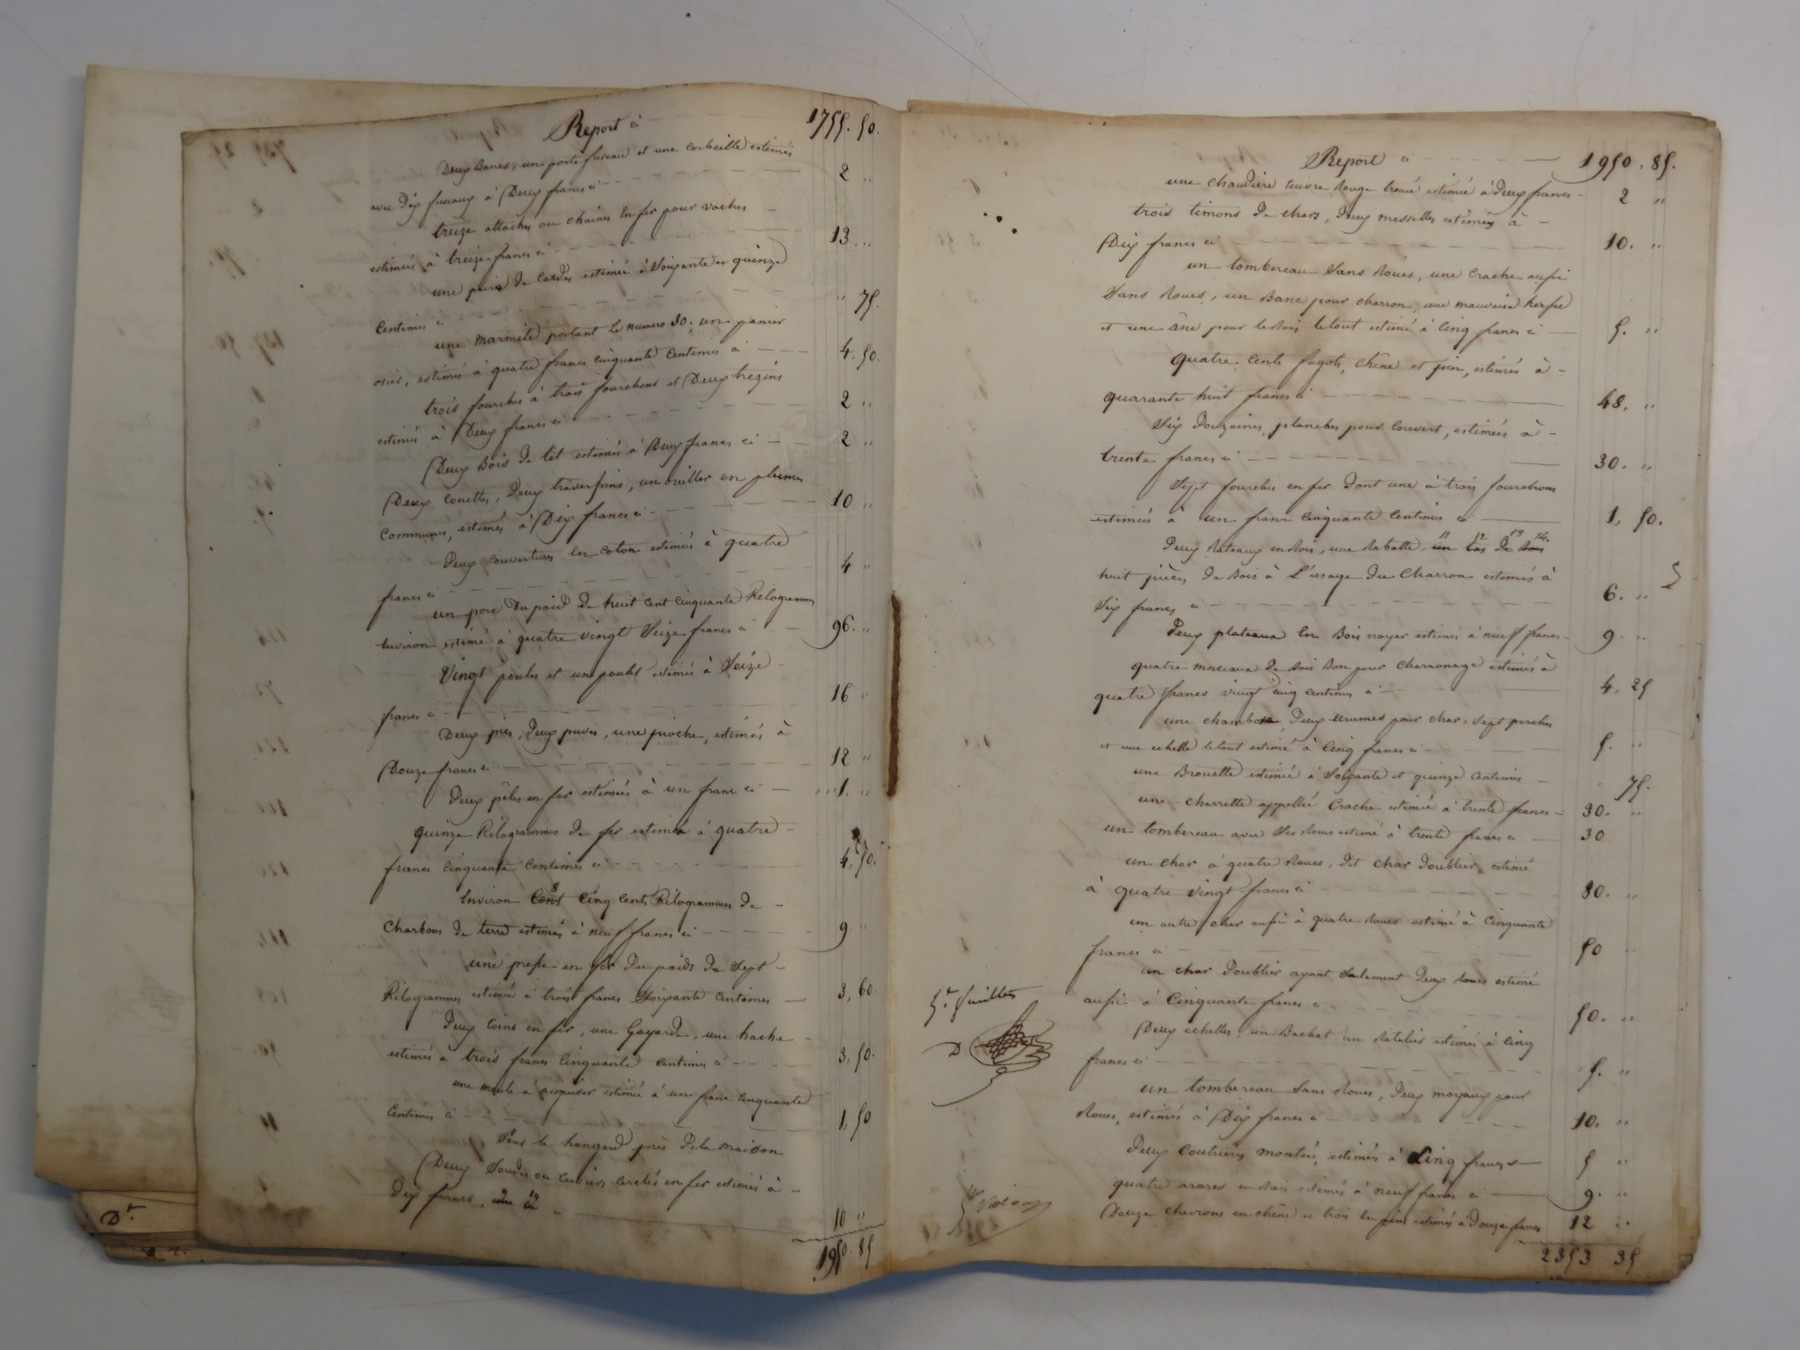 Report ci 1755. 50.
Deux Bancs, un porte fuseau et une corbeille estimés
avec dix fuseaux à Deux francs ci 2 "
treize attaches ou chaines en fer pour vaches
estimés à treize francs ci 13 "
une paire de Cardes estimée à Soixante et quinze
Centimes ci " 75.
une marmite portant le numero 30, un panier
osier, estimés à quatre francs cinquante Centimes ci 4. 50.
trois fourches à trois fourchons et Deux
estimés à Deux francs ci 2 "
Deux Bois de lit estimés à Deux francs ci 2 "
Deux couettes, Deux traversins, un oreiller en plumes
Communes, estimés à Dix francs ci 10 "
Deux couvertures en coton estimées à quatre
francs ci 4 "
un porc Du poid de huit cent cinquante Kilogrammes
Environ estimé à quatre vingt Seize francs ci 96. "
Vingt poules et un poulet estimés à Seize
francs ci 16 "
Deux pics, Deux , une pioche, estimés à
Douze francs ci 12 "
Deux pêles en fer estimées à un franc ci 1. "
quinze Kilogrammes de fer estimés à quatre
francs cinquante Centimes ci 4. 50.
Environ Cinq Cents Kilogrammes de
Charbons de terre estimés à neuf francs ci 9
une presse en fer du poids de Sept
Kilogrammes estimée à trois francs Soixante Centimes 3, 60
Deux Coins en fer, une Goyarde, une hache
estimés à trois francs Cinquante Centimes ci 3, 50.
une meule à aiguiser estimée à un franc Cinquante
Centimes ci 1, 50
Sous le hangard près De la maison
Deux ou Cuviers cerclés en fer estimés à
Dix francs, ci 10 "
1950. 85
Report ci 1950. 85.
une chaudière Cuivre Rouge trouée estimée à Deux francs 2 "
trois timons de chars, Deux estimés à
Dix francs ci 10. "
un tombereau Sans Roues, une Crache aussi
Sans Roues, un Banc pour charron, une mauvaise herse
et une âne pour le bois le tout estimé à Cinq francs ci 5. "
quatre Cents fagots, Chêne et pin, estimés à
quarante huit francs ci 48. "
Six Douzaines planches pour Couvert, estimées à
trente francs ci 30. "
Sept fourches en fer Dont une à trois fourchons
estimées à un franc Cinquante Centimes ci 1, 50.
Deux Rateaux en Bois, une Rabatte un tas De Bois
huit pièces De Bois à L'usage Du Charron estimés à
Six francs ci 6. "
Deux plateaux En Bois noyer estimés à neuf francs 9. "
quatre morceaux De Bois Bon pour Charronage estimés à
quatre francs vingt cinq centimes ci 4, 25
une Deux pour char, Sept perches
et une echelle le tout estimé à Cinq francs ci 5. "
une Brouette estimée à Soixante et quinze Centimes " 75.
une charrette appellée Crache estimée à trente francs 30. "
un tombereau avec Ses Roues estimé à trente francs ci 30
un char à quatre Roues, Dit char Doublier, estimé
à quatre vingt francs ci 80. "
un autre char aussi à quatre Roues estimé à Cinquante
francs ci 50
un char Doublier ayant Seulement Deux Roues estimé
aussi à Cinquante francs ci 50. "
Deux échelles, un Bachat un Ratelier estimés à Cinq
francs ci 5. "
un tombereau Sans Roues, Deux moyaux pour
Roues, estimés à Dix francs ci 10. "
Deux Coutriers montés, estimés à Cinq francs 5 "
quatre araires en Bois estimés à neuf francs ci 9. "
Douze chevrons en chêne et trois en pins estimés à Douze francs 12 "
2353 35
Dt